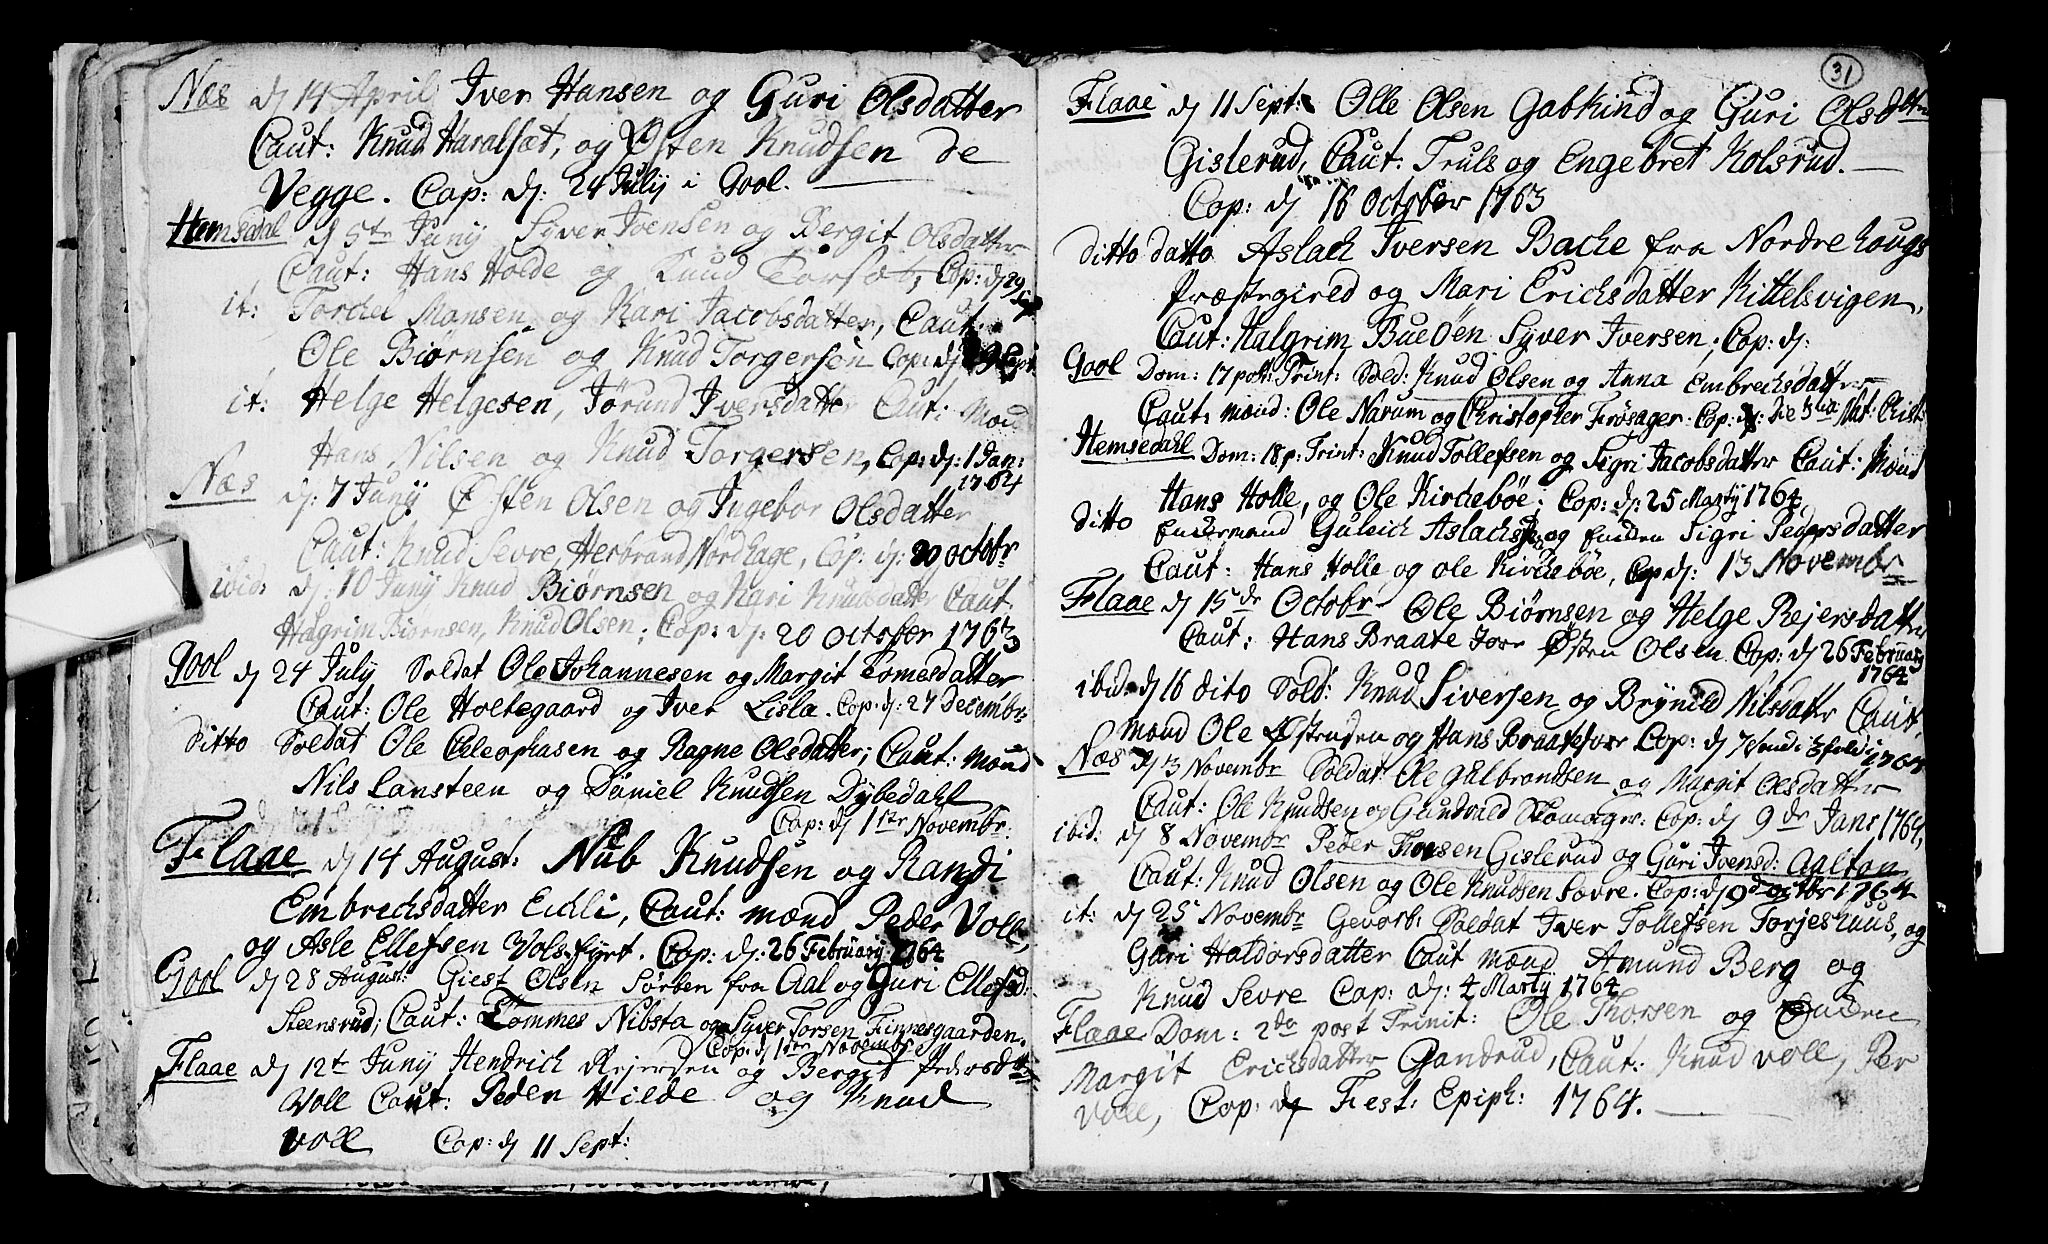 Næs dj 14 April Iver Hansen og Guri Olsdatter
Caut: Knud Haralset, og Østen Knudsen de
Vegge. Cop: dj: 24 Julij i Gool.
Hemsedal dj 5te Junij Siver Ivensen og Bergit Olsdatter
Caut: Hans Holde og Knud Torset, Cop: dj 29
it: Torchel Monsen og Kari Jacobsdatter, Caut.
Ole Biørnsen og Knud Torgersen Cop: dj
it: Helge Helgesen, Jørund Iversdatter Caut: Mænd
Hans Nilsen og Knud Torgersen, Cop: dj: 1 Jan:
1764
Næs dj: 7 Junij Østen Olsen og Ingebor Olsdatter
Caut: Knud Sevre, Herbrand Nordhage, Cop: dj: 20 octobr
ibid: dj: 10 Junij Knud Biørnsen og Kari Knudsdatter Caut.
Halgrim Biørnsen, Knud Olsen; Cop: dj: 20 october 1763
Gool dj 24 July Soldat Ole Johannesen og Margit Tomesdatter
Caut: Ole Holtegaard og Iver Lisla. Cop: dj: 27 Decembr
Ditto Soldat Ole Cleophasen og Ragne Olsdatter; Caut: mænd
Nils Lansteen og Daniel Knudsen Dybedahl
Cop: dj 1ste Novembr.
Flaae dj 14 August: Nub Knudsen og Randi
Embrechsdatter Eckli, Caut: mænd Peder Voll,
og Asle Ellefsen Volsfyrt. Cop: dj: 26 Februarij 1764
Gool dj 28 August: Giest Olsen Sørben fra Aal og Guri Ellefsd:
Steensrud; Caut: Tommes Nibsta og Syver Torsen Finnesgaarden.
Cop: dj 1ste Novembr
Flaae dj 12t Junij Hendrich Rejersen og Bergit Pedersdtr
Voll Caut: Peder Hilde og Knud
Voll Cop: dj 11 Sept:
31
Flaae dj 11 Sept: Olle Olsen Gabkind og Guri Olsdttr
Gislerud, Caut: Truls og Engebret Kolsrud.
Cop: dj 16 October 1763
ditto datto Aslach Iversen Bache fra Nordrehougs
Præstegield og Mari Erichsdatter Kittelsvigen,
Caut: Halgrim Bueøen Syver Iversen; Cop: dj:
Gool Dom: 17 post: Trint: Sold: Knud Olsen og Anna Embrechsdatter
Caut: mænd: Ole Narum og Christopher Frøsager. Cop: dj: die 3tia Nat: Christ:
Hemsedahl Dom: 18 p: Trint: Knud Tollefsen og Sigri Jacobsdatter Caut: Mænd
Hans Holle, og Ole Kirchebøe; Cop: dj: 25 Martij 1764
ditto Enckemand Gulich Aslachsen og Enchen Sigri Pedersdatter
Caut: Hans Holle og Ole Kirchebøe, Cop dj: 13 Novembr
Flaae dj 15de Octobr Ole Biørnsen og Helge Rejersdatter
Caut: Hans Braatefore Østen Olsen. Cop: dj 26 Februarij
1764
ibid. dj 16 dito Sold: Knud Siversen og Brynild Nilsdatter Caut.
mænd Ole Østenden og Hans Braatefore Cop: dj 7
1764
Næs dj 3 Novembr Soldat: Ole Gulbrandsen og Margit Olsdatter
Caut: Ole Knudsen og Gundvald Skomager: Cop: dj 9de Jan: 1764,
ibid: dj 8 Novembr Peder Thorsen Gislerud og Guri Ivensd: Aalton
Caut: Knud Olsen og Ole Knudsen Sævre. Cop: dj octbr 1764
it: dj 25 Novembr Gevorb: Soldat Iver Tollefsen Torjeshuus, og
Guri Haldorsdatter Caut mænd Amund Berg og
Knud Sevre Cop: dj: 4 Martij 1764
Flaae Dom: 2da post Trinit: Ole Thorsen og Enchen
Margit Erichsdatter Gandrud, Caut: Knud Voll, Per
Voll, Cop: dj Fest: Epiph: 1764.